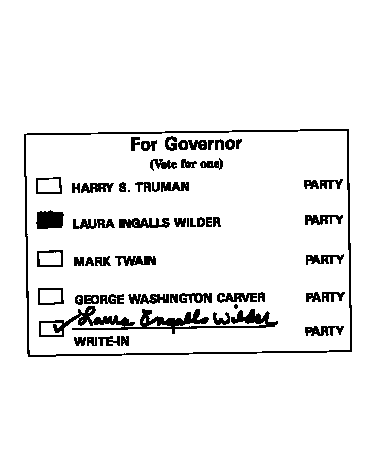 For Governor
(Vote for one)
HARRY S. TRUMAN PARTY
LAURA INGALLS WILDER PARTY
MARK TWAIN PARTY
GEORGE WASHINGTON CARVER PARTY
Laura Engalls Wilder PARTY
WRITE-IN